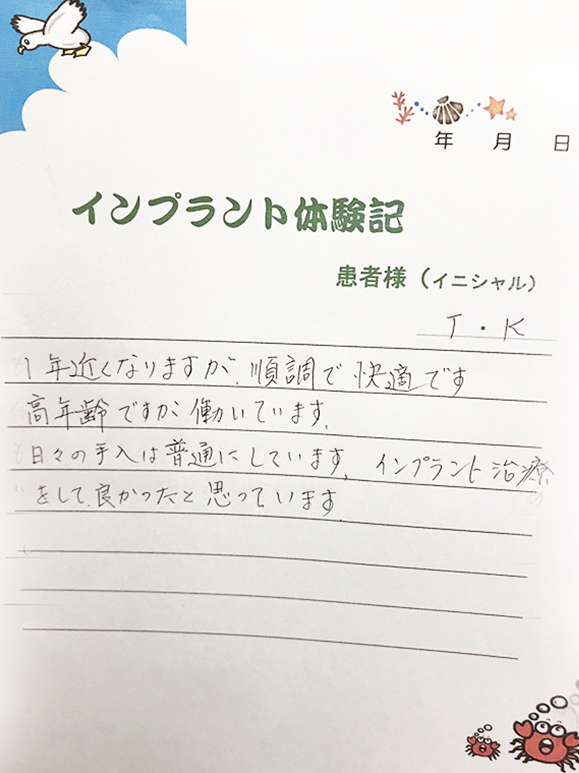 年 月 日
インプラント体験記
患者様（イニシャル）
T・K
1年近くなりますが、順調で快適です
高年齢ですが働いています。
日々の手入は普通にしています。インプラント治療
をして良かったと思っています。